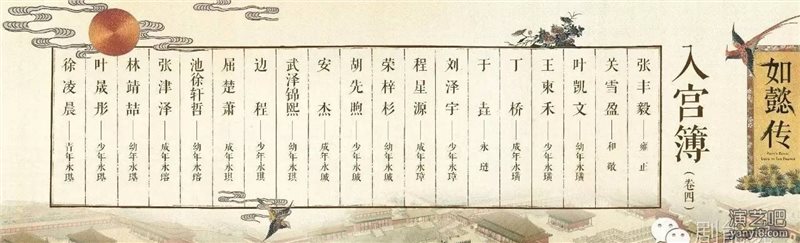 如懿传
入宫簿
（卷四）
张丰毅——雍正
关雪盈——和敬
叶凯文——幼年永璜
王柬禾——少年永璜
丁桥——成年永璜
于垚——永琏
刘泽宇——少年永璋
程星源——成年永璋
荣梓杉——幼年永珹
胡先煦——少年永珹
安杰——成年永珹
武泽锦熙——幼年永琪
边程——少年永琪
屈楚萧——成年永琪
池徐轩哲——幼年永瑢
张津泽——成年永瑢
林靖喆——幼年永璂
叶晟彤——少年永璂
徐凌晨——青年永璂
演艺吧
www.yanyi8.com